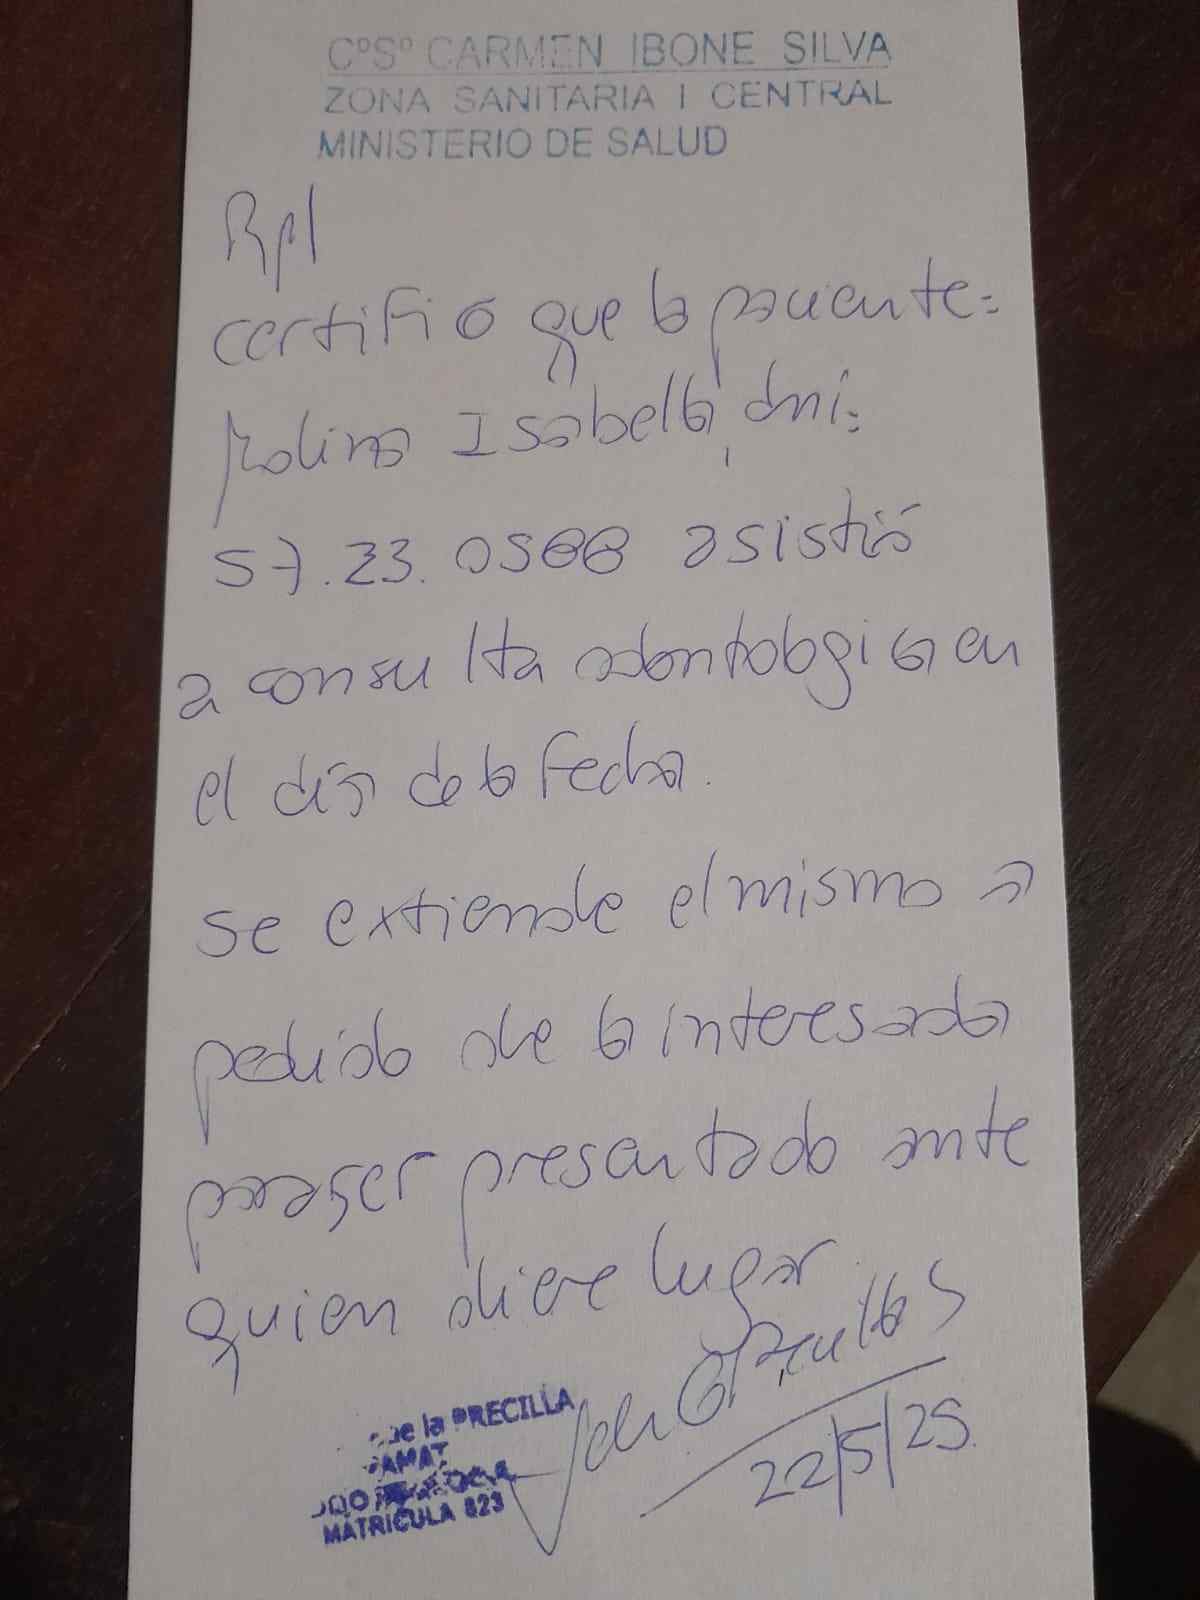 CºSº CARMEN IBONE SILVA
ZONA SANITARIA I CENTRAL
MINISTERIO DE SALUD
Rp/
certifico que la paciente:
Molina Isabella, dni:
57.23.0588 asistió
a consulta odontologica en
el día de la fecha.
se extiende el mismo a
pedido de la interesada
para ser presentado ante
quien diere lugar.
22/5/25.
de la PRECILLA
MATRICULA 823